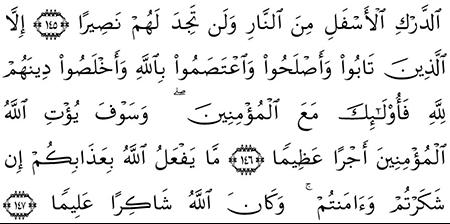 ٱلدَّرْكِ ٱلْأَسْفَلِ مِنَ ٱلنَّارِ وَلَن تَجِدَ لَهُمْ نَصِيرًا ١٤٥ إِلَّا
ٱلَّذِينَ تَابُوا۟ وَأَصْلَحُوا۟ وَٱعْتَصَمُوا۟ بِٱللَّهِ وَأَخْلَصُوا۟ دِينَهُمْ
لِلَّهِ فَأُو۟لَـٰٓئِكَ مَعَ ٱلْمُؤْمِنِينَ ۖ وَسَوْفَ يُؤْتِ ٱللَّهُ
ٱلْمُؤْمِنِينَ أَجْرًا عَظِيمًا ١٤٦ مَّا يَفْعَلُ ٱللَّهُ بِعَذَابِكُمْ إِن
شَكَرْتُمْ وَءَامَنتُمْ ۚ وَكَانَ ٱللَّهُ شَاكِرًا عَلِيمًا ١٤٧